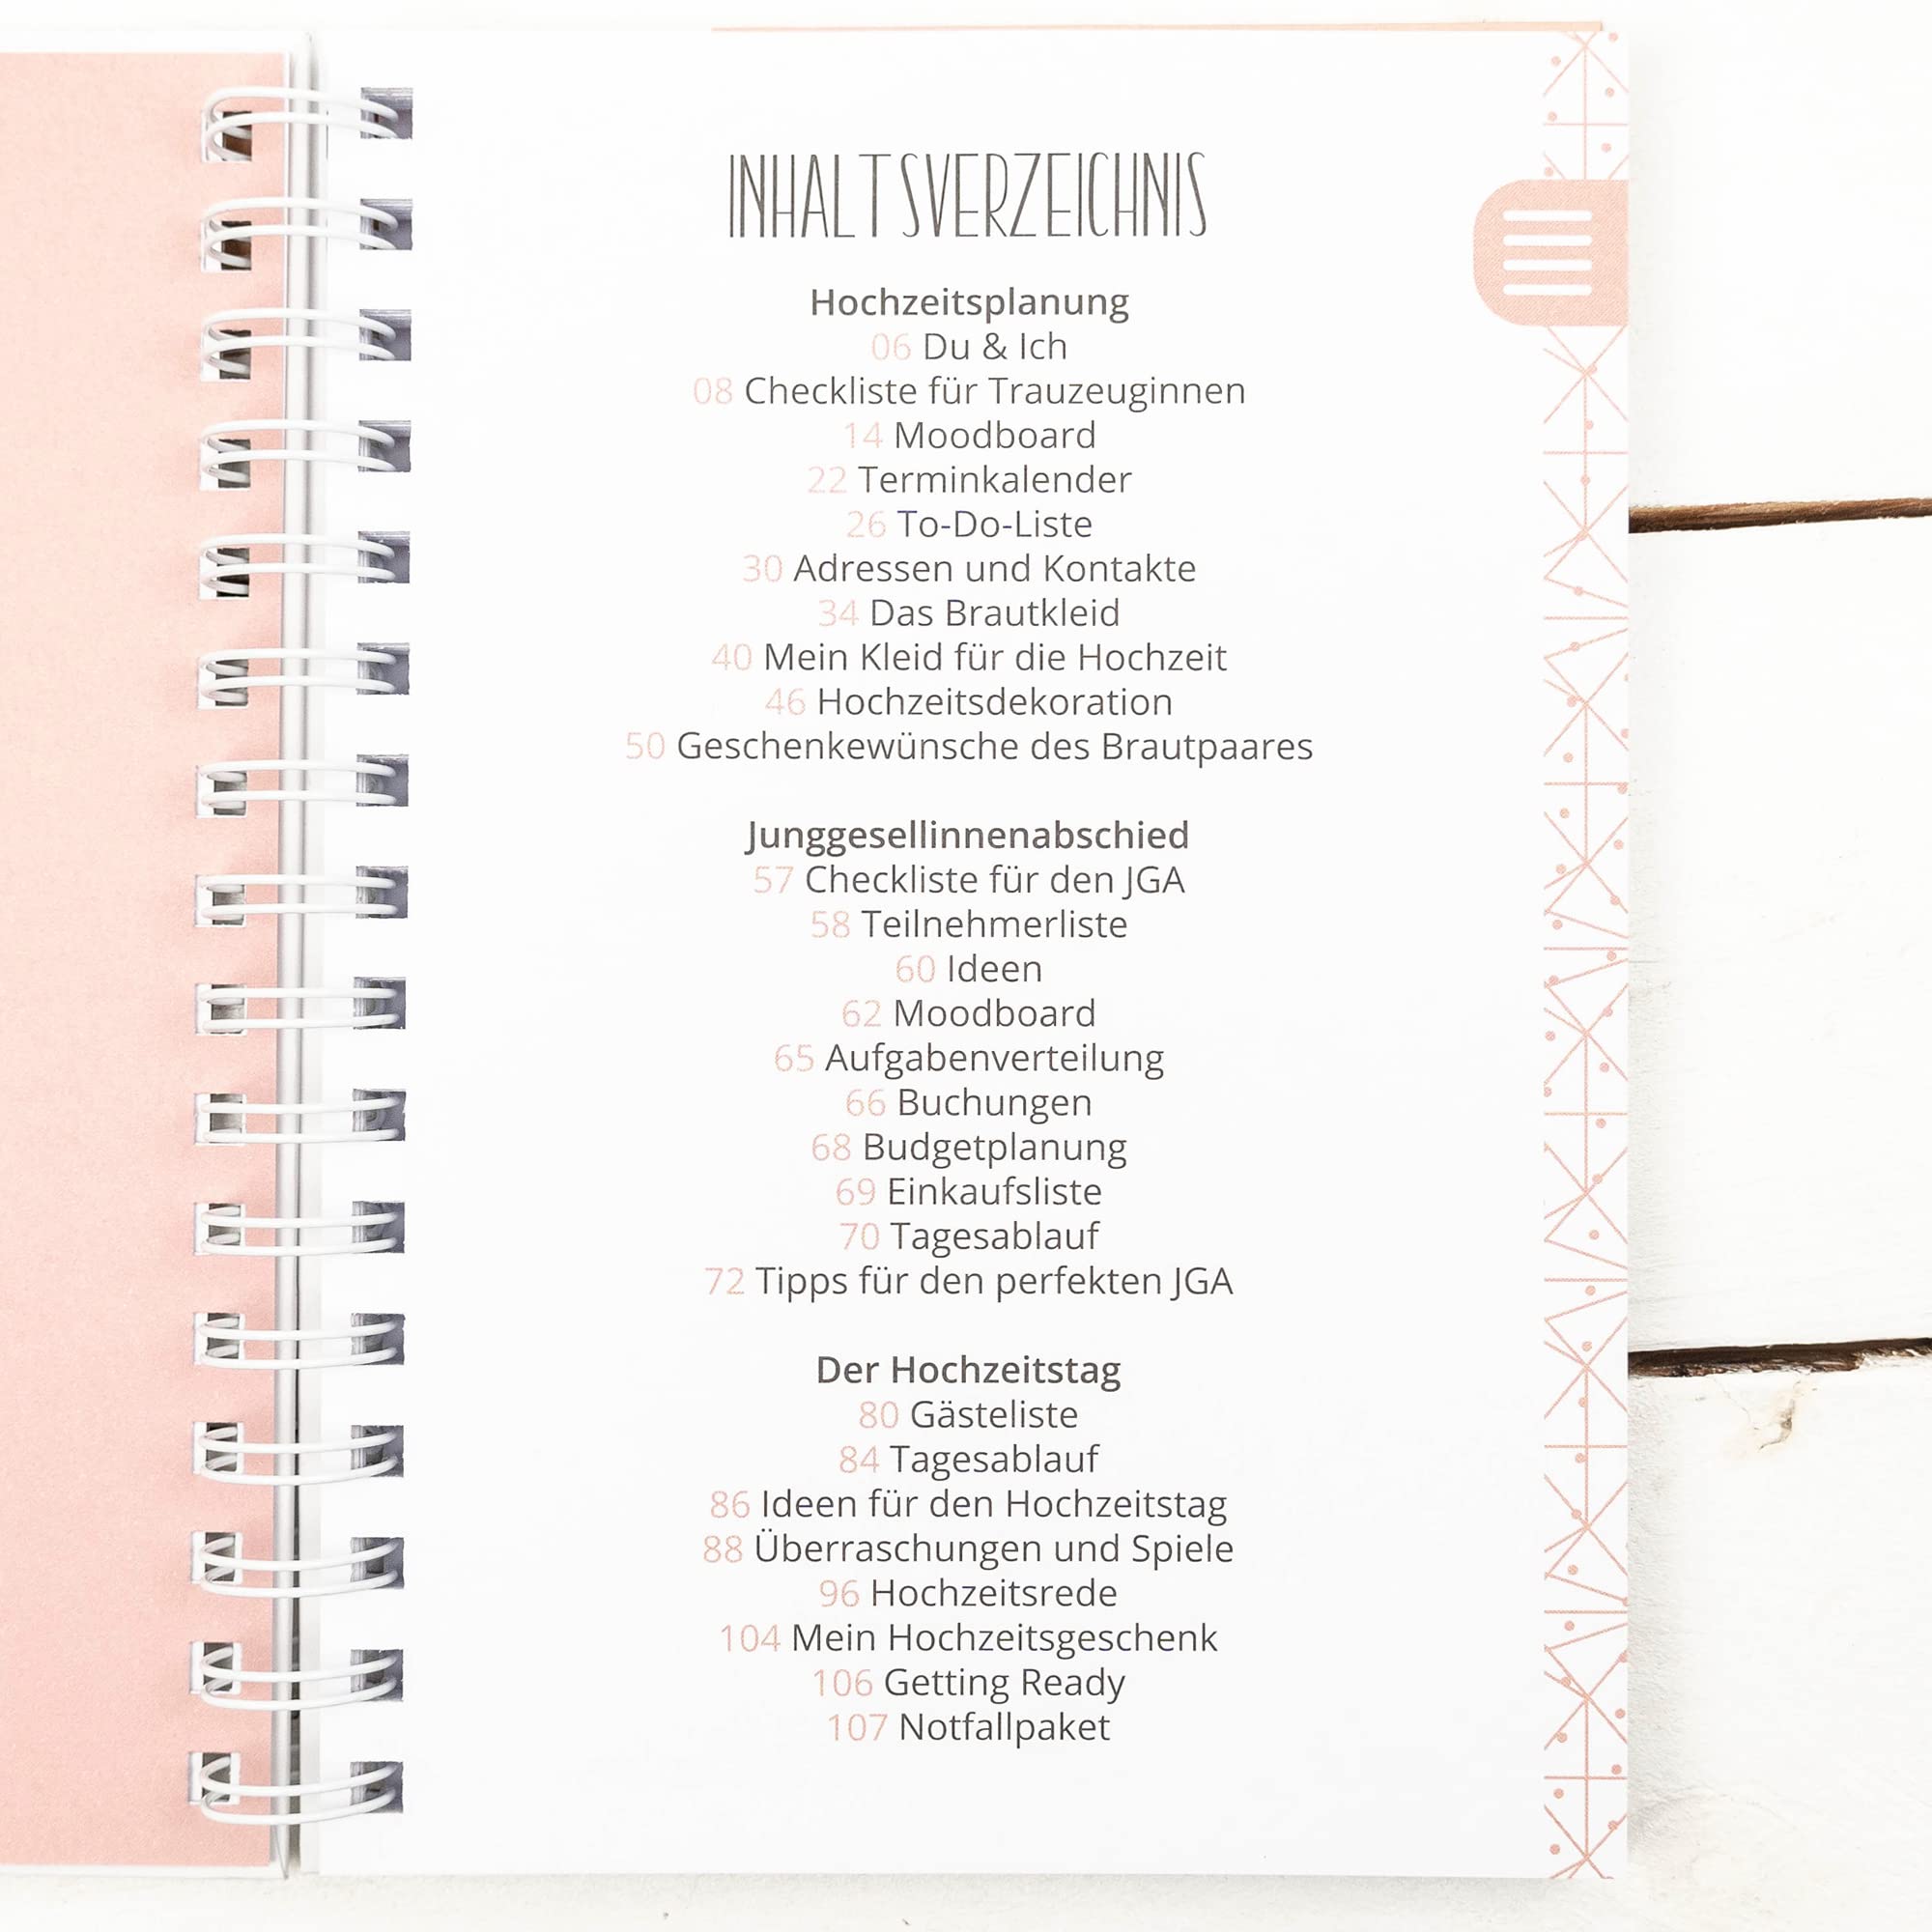 INHALTSVERZEICHNIS
Hochzeitsplanung
06 Du & Ich
08 Checkliste für Trauzeuginnen
14 Moodboard
22 Terminkalender
26 To-Do-Liste
30 Adressen und Kontakte
34 Das Brautkleid
40 Mein Kleid für die Hochzeit
46 Hochzeitsdekoration
50 Geschenkewünsche des Brautpaares
Junggesellinnenabschied
57 Checkliste für den JGA
58 Teilnehmerliste
60 Ideen
62 Moodboard
65 Aufgabenverteilung
66 Buchungen
68 Budgetplanung
69 Einkaufsliste
70 Tagesablauf
72 Tipps für den perfekten JGA
Der Hochzeitstag
80 Gästeliste
84 Tagesablauf
86 Ideen für den Hochzeitstag
88 Überraschungen und Spiele
96 Hochzeitsrede
104 Mein Hochzeitsgeschenk
106 Getting Ready
107 Notfallpaket